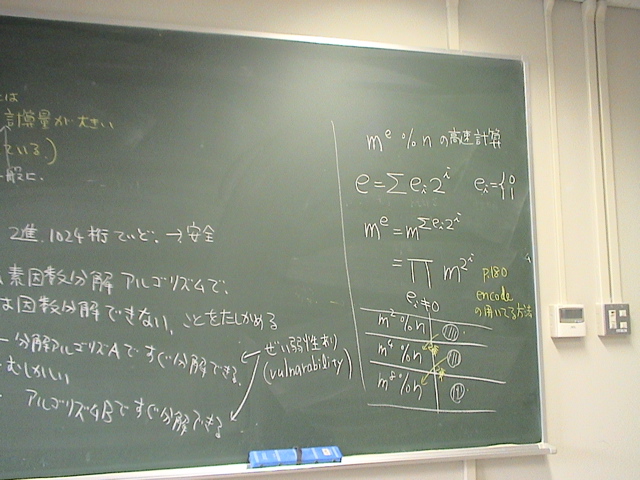 は
計算量が大きい
ている。)
解に.
2進.1024桁ていど. → 安全
素因数分解アルゴリズムで、
は因数分解できない、ことをたしかめる
分解アルゴリズムAですぐ分解できる.
むしかしい
アルゴリズムBですぐ分解できる
ぜい弱性あり
(vulnarability)
m^e % n の高速計算
e = Σ e_i 2^i  e_i = {0 1
m^e = m^{Σ e_i 2^i}
= ∏ m^{2^i}
e_i ≠ 0
p180
encode
の用いてる方法
m^2 % n
m^4 % n
m^8 % n